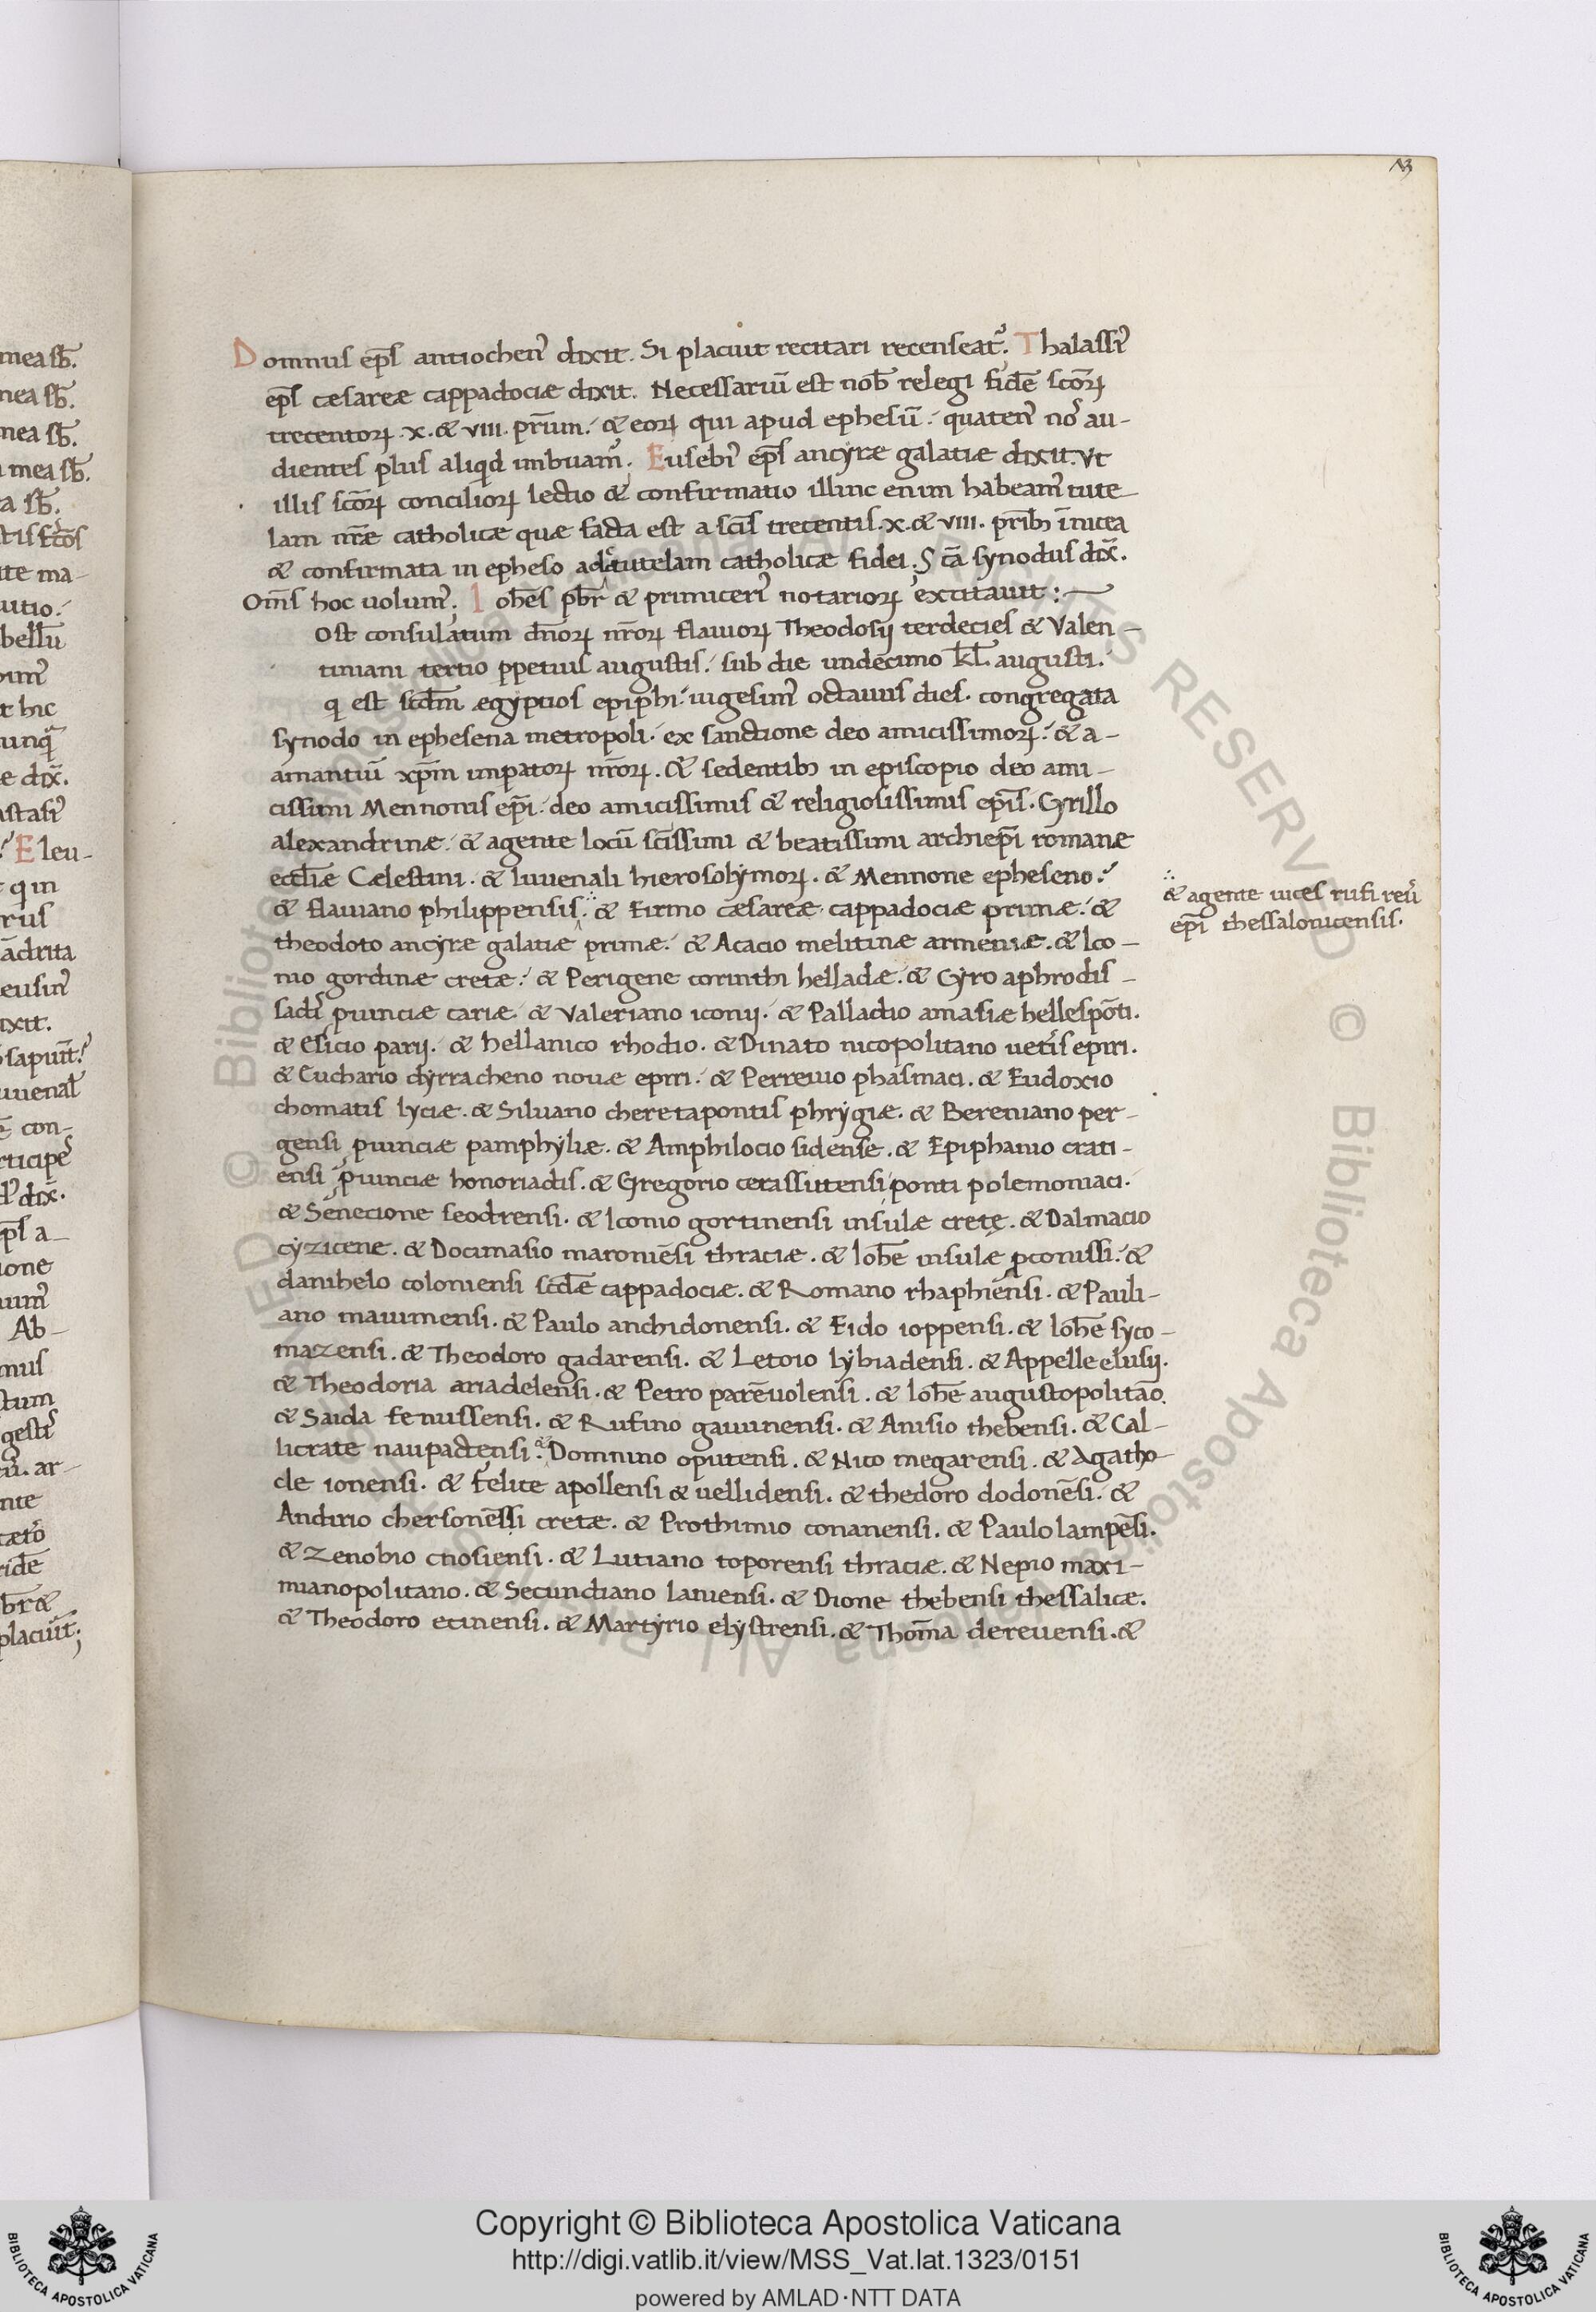 Domnus ep̄s antiochen᾽ dixit. Si placuit recitari recenseat᾽. Thalassi᾽
ep̄s cæsareæ cappadociæ dixit. Necessariū est nob̄ relegi fidē sc̄oꝝ
trecentoꝝ .x. & viii. pr̄um. & eoꝝ qui apud ephesū. quaten᾽ no᾽ au-
dientes plus aliqd imbuam᾽. Eusebi᾽ ep̄s ancyræ galatiæ dixit. Vt
illis sc̄oꝝ concilioꝝ lectio & confirmatio illinc enim habeam᾽ tute
lam nr̄æ catholicæ quæ facta est a sc̄is trecentis .x. & viii. prib; ī nicea
& confirmata in epheso ad tutelam catholicæ fidei; Sc̄a synodus dix̄.
Om̄s hoc volum᾽; Ioh̄es pb̄r & primiceri᾽ notarioꝝ excitavit:
ost consulatum dn̄oꝝ nr̄oꝝ flavioꝝ Theodosij terdecies & Valen-
tiniani tertio ꝑpetuis augustis. sub die undecimo kl̄. augusti.
q est scd̄m ægyptios epiphi. vigesim᾽ octavus dies. congregata
synodo in ephesena metropoli. ex sanctione deo amicissimoꝝ. & a-
amantiū xp̄m impatoꝝ nr̄oꝝ. & sedentib; in episcopio deo ami-
cissimi Mennonis ep̄i. deo amicissimis & religiosissimis ep̄is. Cyrillo
alexandrinæ. & agente locū sc̄issimi & beatissimi archiep̄i romanæ
eccl̄iæ Cælestini. & Iuvenali hierosolymoꝝ. & Mennone epheseno.
& flaviano philippensis. & Firmo cæsareæ cappadociæ primæ. &
∴ & agente vices rufi rev᾽
ep̄i thessalonicensis.
theodoto ancyræ galatiæ primæ. & Acacio melitinæ armeniæ. & Ico-
nio gordinæ cretæ. & Perigene corinthi helladæ. & Cyro aphrodis-
sadi᾽ ꝓvinciæ cariæ. & Valeriano iconij. & Palladio amasiæ hellespōti.
& Esicio parij. & hellanico rhodio. & Dinato nicopolitano vet᾽is epiri.
& Euchario dyrracheno novæ epiri. & Perrevio phasmaci. & Eudoxio
chomatis lyciæ. & Silvano cheretapontis phrygiæ. & Bereniano per-
gensi ꝓvinciæ pamphyliæ. & Amphilocio sidense. & Epiphanio crati-
ensi ꝓvinciæ honoriadis. & Gregorio cerassiitensi ponti polemoniaci.
& Senecione seodrensi. & Iconio gortinensi insulæ cretę. & Dalmacio
cyzicene. & Docimasio maroniēsi thraciæ. & Ioh̄e insulæ ꝓconissi. &
danihelo coloniensi scd̄e cappadociæ. & Romano rhaphiensi. & Pauli-
ano maiumensi. & Paulo anchidonensi. & Fido ioppensi. & Ioh̄e syco-
mazensi. & Theodoro gadarensi. & Letoio lybiadensi. & Appelle elusij.
& Theodoria ariadelensi. & Petro parēvolensi. & Ioh̄e augustopolitāo.
& Saida fenussensi. & Rufino gavinensi. & Anisio thebensi. & Cal-
licrate naupactensi. & Domnino opuntensi. & Nico megarensi. & Agatho-
cle ionensi. & felice apollensi & vellidensi. & thedoro dodonēsi. &
Andirio chersonessi cretæ. & Prothimio conanensi. & Paulo lampēsi.
& Zenobio cnosiensi. & Lutiano toporensi thraciæ. & Nepio maxi-
mianopolitano. & Secundiano laniensi. & Dione thebensi thessalicæ.
& Theodoro etinensi. & Martyrio elystrensi. & Thoma derevensi. &
Copyright © Biblioteca Apostolica Vaticana
http://digi.vatlib.it/view/MSS_Vat.lat.1323/0151
powered by AMLAD·NTT DATA